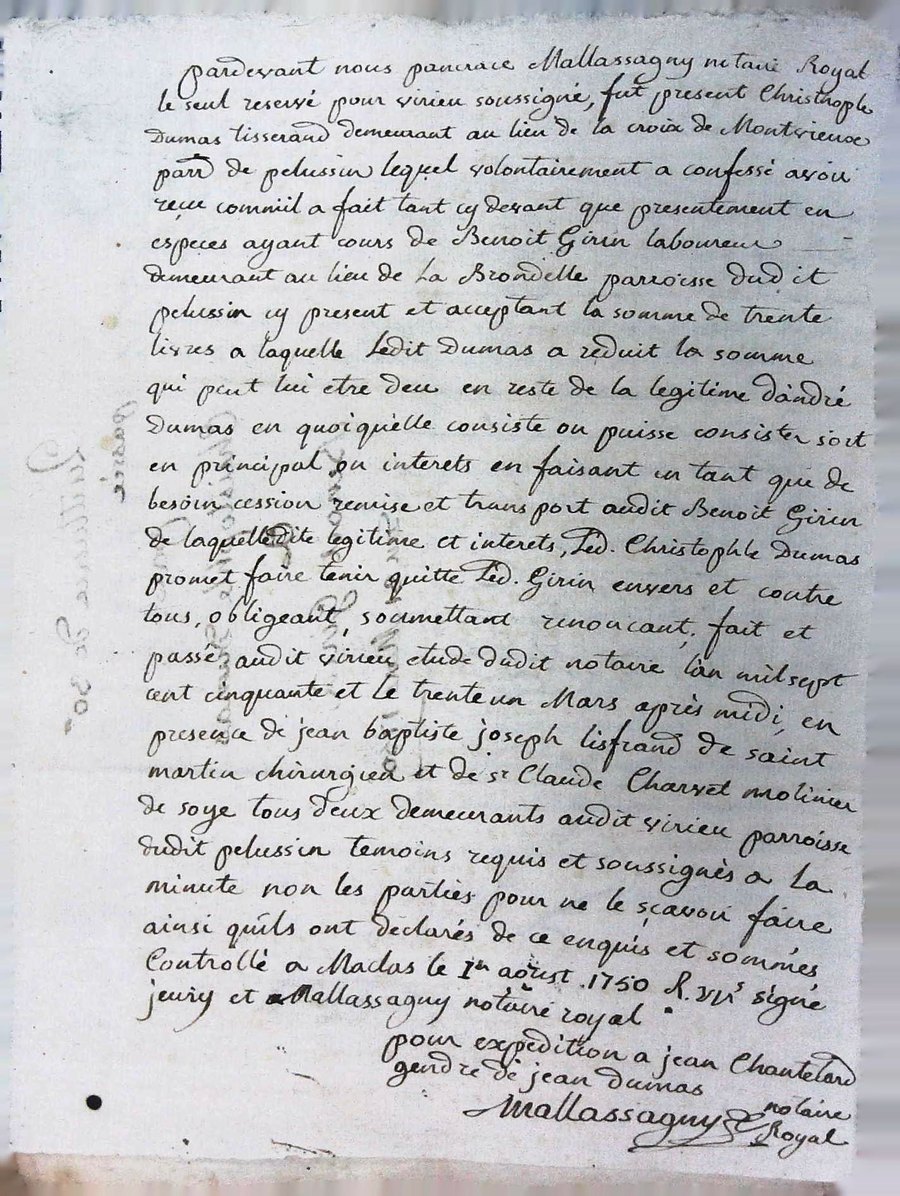 pardevant nous pancrace Mallassagny notaire Royal
le seul reservé pour virieu soussigné, fut present Christhople
Dumas tisserand demeurant au lieu de la croix de Montvieux
parr de pelussin lequel volontairement a confessé avoir
reçu comme il a fait tant cy devant que presentement en
especes ayant cours de Benoit Girin laboureur
demeurant au lieu de La Brondelle parroisse dudit
pelussin cy present et acceptant la somme de trente
livres a laquelle Ledit Dumas a reduit la somme
qui peut lui etre deu en reste de la legitime d'andré
Dumas en quoi qu'elle consiste ou puisse consister soit
en principal ou interets en faisant en tant que de
besoin cession remise et transport audit Benoit Girin
de laquelle dite legitime et interets, Led. Christophle Dumas
promet faire tenir quitte Led. Girin envers et contre
tous, obligeant, soumettant renoncant, fait et
passé audit virieu etude dudit notaire l'an mil sept
cent cinquante et le trente un Mars après midi, en
presence de jean baptiste joseph lisfrand de saint
martin chirurgien et de sr Claude Charvet molinier
de soye tous deux demeurants audit virieu parroisse
dudit pelussin temoins requis et soussignés a La
minute non les parties pour ne le sçavoir faire
ainsi qu'ils ont déclarés de ce enquis et sommés
Controllé a Maclas le 1er aoust .1750 R. signé
jeury et Mallassagny notaire royal
pour expedition a jean Chantelard
gendre de jean dumas
Mallassagny notaire
Royal